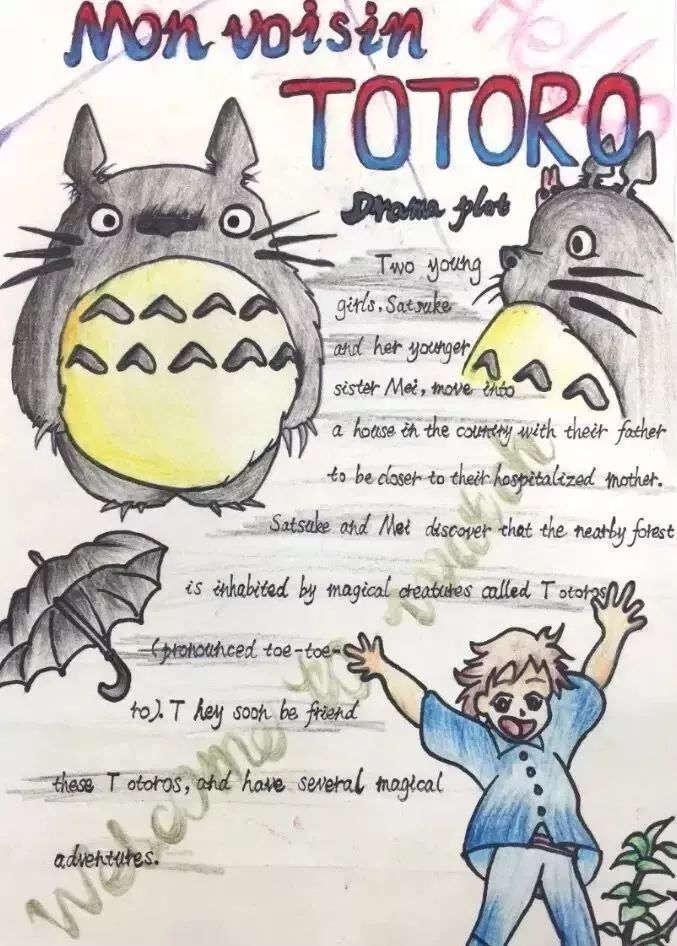 Mon voisin
Hello
TOTORO
Drama plot
Two young
girls, Satsuke
and her younger
sister Mei, move into
a house in the country with their father
to be closer to their hospitalized mother.
Satsuke and Mei discover that the nearby forest
is inhabited by magical creatures called T otoros
(pronounced toe-toe-
to). T hey soon be friend
these T otoros, and have several magical
adventures.
Welcome to watch